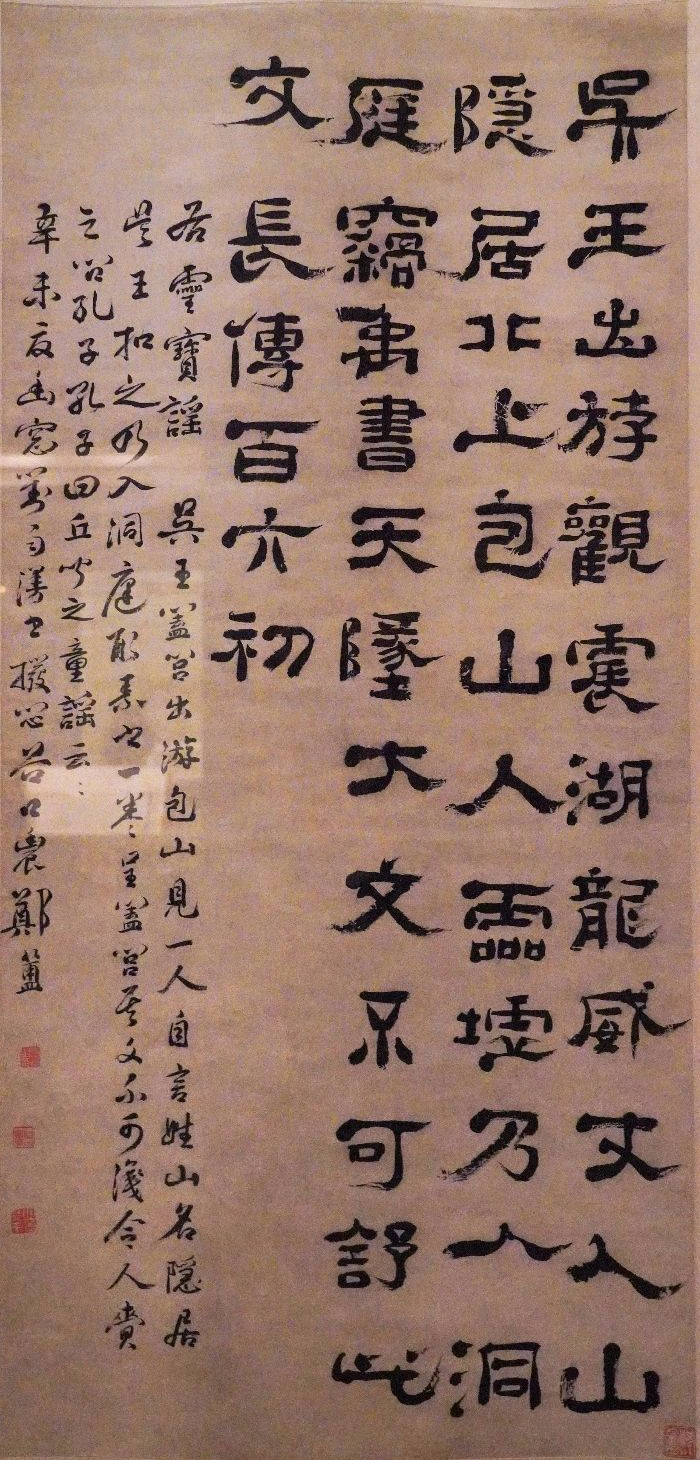 吳王出游觀震湖龍威丈人山
隱居北上包山人靈墟乃入洞
庭竊禹書天墬大文不可舒此
文長傳百六初
右靈寶謠 吳王蓋閭出游包山見一人自言姓山名隱居
吳王扣之乃入洞庭取素書一卷呈蓋閭其文不可識令人賷
之問孔子孔子曰丘聞之童謠云〻
辛未夏幽窓對雨漫書撥悶谷口農鄭簠